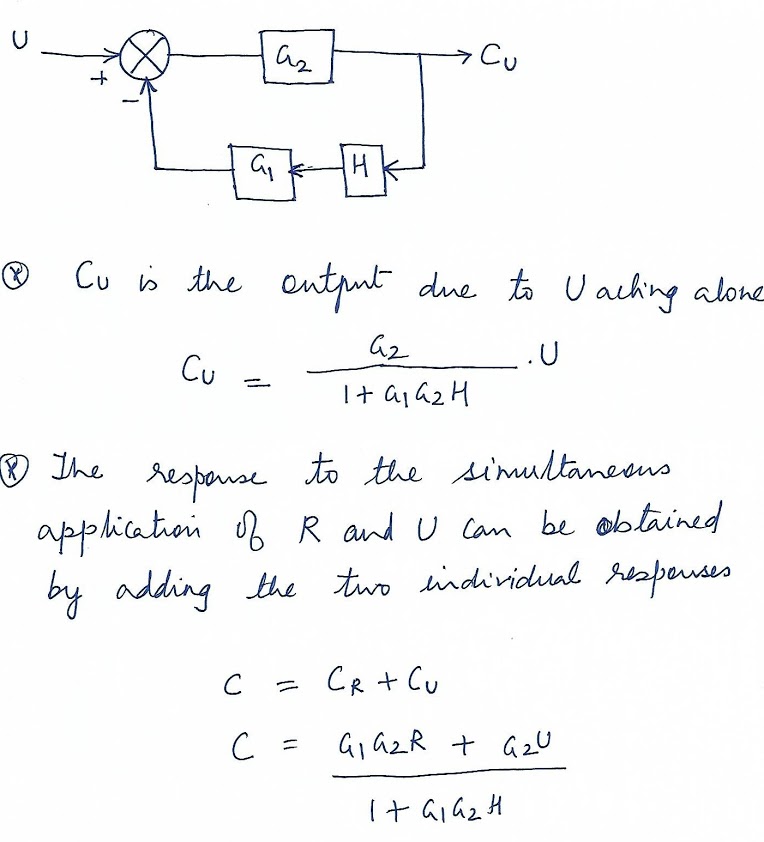 U
+
−
G₂
Cᵤ
G₁
H
ⓧ Cᵤ is the output due to U acting alone
Cᵤ = G₂ / 1 + G₁G₂H . U
ⓧ The response to the simultaneous
application of R and U can be obtained
by adding the two individual responses
C = C_R + Cᵤ
C = G₁G₂R + G₂U
1 + G₁G₂H